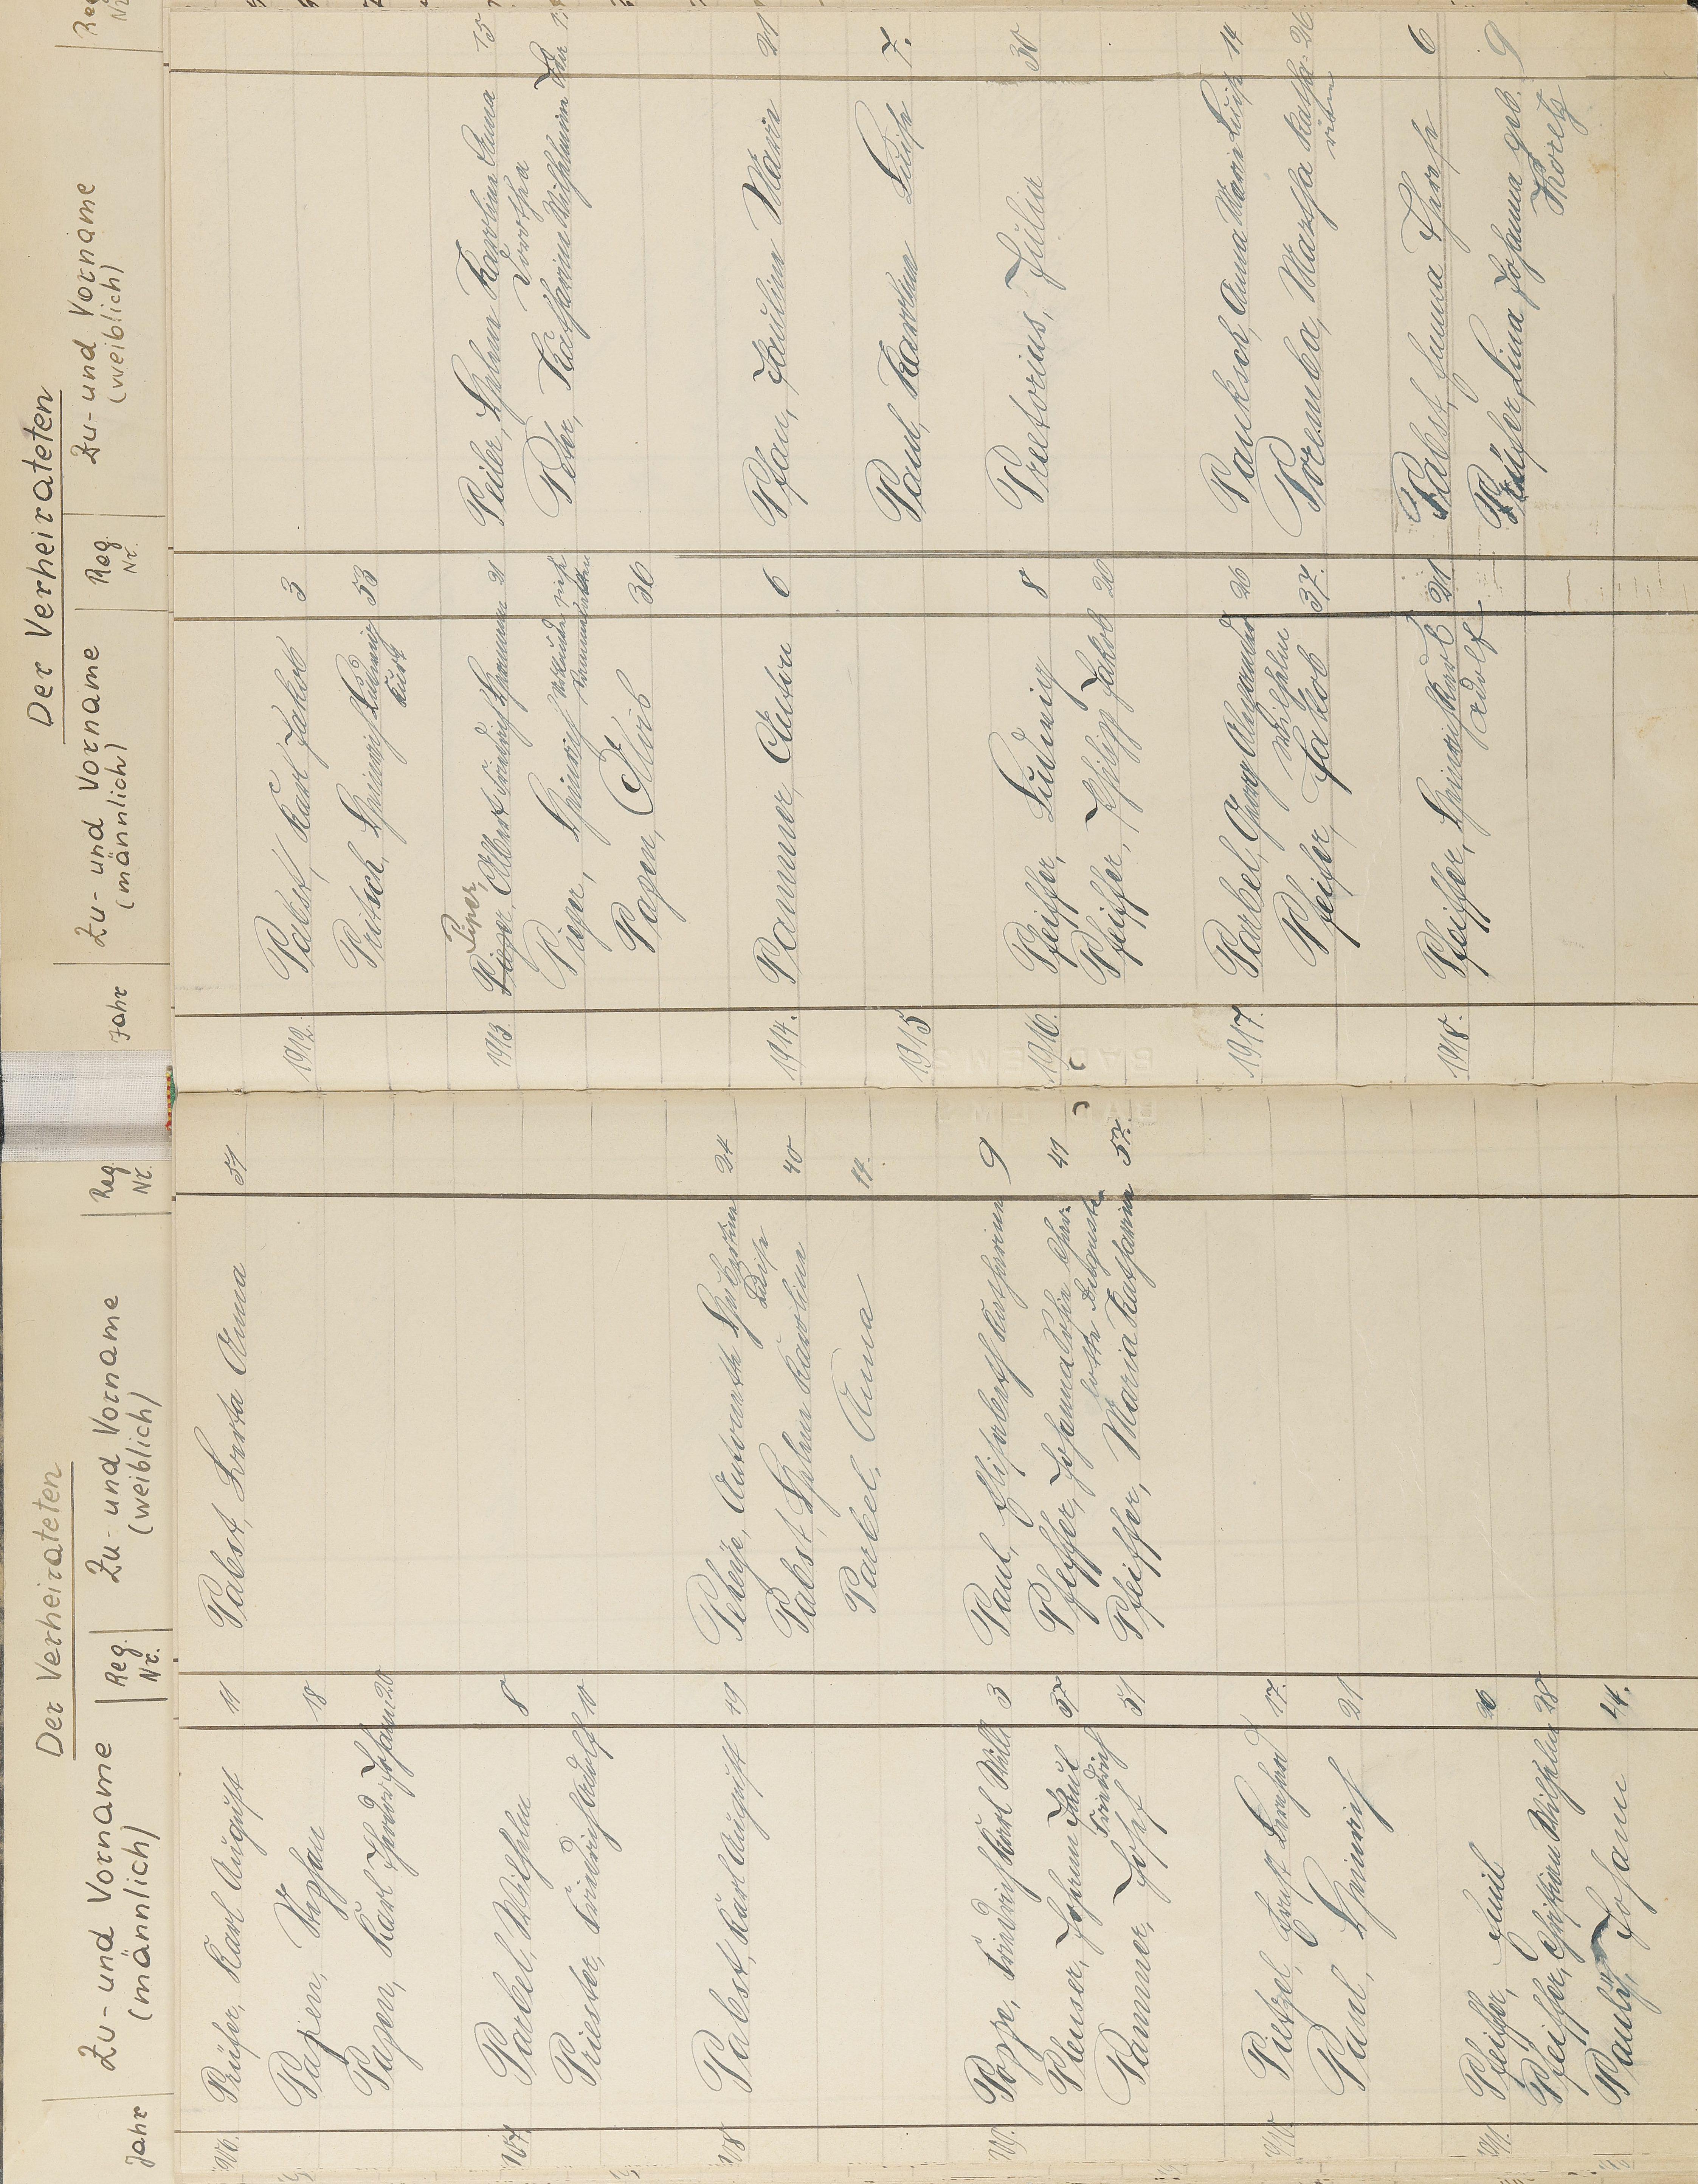 Der Verheirateten
Jahr
Zu- und Vorname
(männlich)
Reg.
Nr.
Zu- und Vorname
(weiblich)
Reg
Nr.
Prüfer, Karl August 11
Pabst, Berta Anna 51
Papen, Stephan 18
Papen, Karl Johann 20
Parbel, Wilhelm 8
Priester, Friedrich Adolf 10
Pabst, Karl August 19
Antoinette
Luise 24
Pabst, Helene Karoline 40
Parbel, Anna 14.
Pope, Friedrich Karl Willi 3
Paul, Elisabeth Katharina 9
Pleuser, Johann Paul 37
Friedrich
Pfeffer, Johanna 41
lotte Auguste
Pammer, Josef 51
Pfeiffer, Maria Katharina 57.
Pietzel, Ernst 17.
Paul, Heinrich 21
Pfeiffer, Emil
Pfeiffer, Christian Wilhelm 28
Pauly, Johann 44.
Der Verheirateten
Jahr
Zu- und Vorname
(männlich)
Reg
Nr.
Zu- und Vorname
(weiblich)
Reg
Nr.
1912.
Pabst, Karl Jakob 3
Pritsch, Heinrich Ludwig 53
Kurt
1913.
Pieper,
Albert Friedrich Hermann 21
Peiler, Helene Karoline Anna 15
Dorothea
Pieper, Heinrich
Peter, Katharine Wilhelmine
Papen, Alois 36
1914.
Pammer, Anton 6
Pfau, Pauline Marie 21
1915
Paul, Karoline Luise 7.
1916.
Pfeiffer, Ludwig 8
Pretorius, Julie 30
Pfeiffer, Philipp Jakob 20
1917.
Parbel, Georg
Wilhelm 26
Pauksch, Anna Marie Luise 14
Pfeifer, Jakob 37.
Poremba, Martha Katha- 26
rine
1918.
Pfeiffer, Heinrich Karl 21
Adolf
Pabst, Emma 6
Prüfer, Lina Johanna geb. 9
Koretz